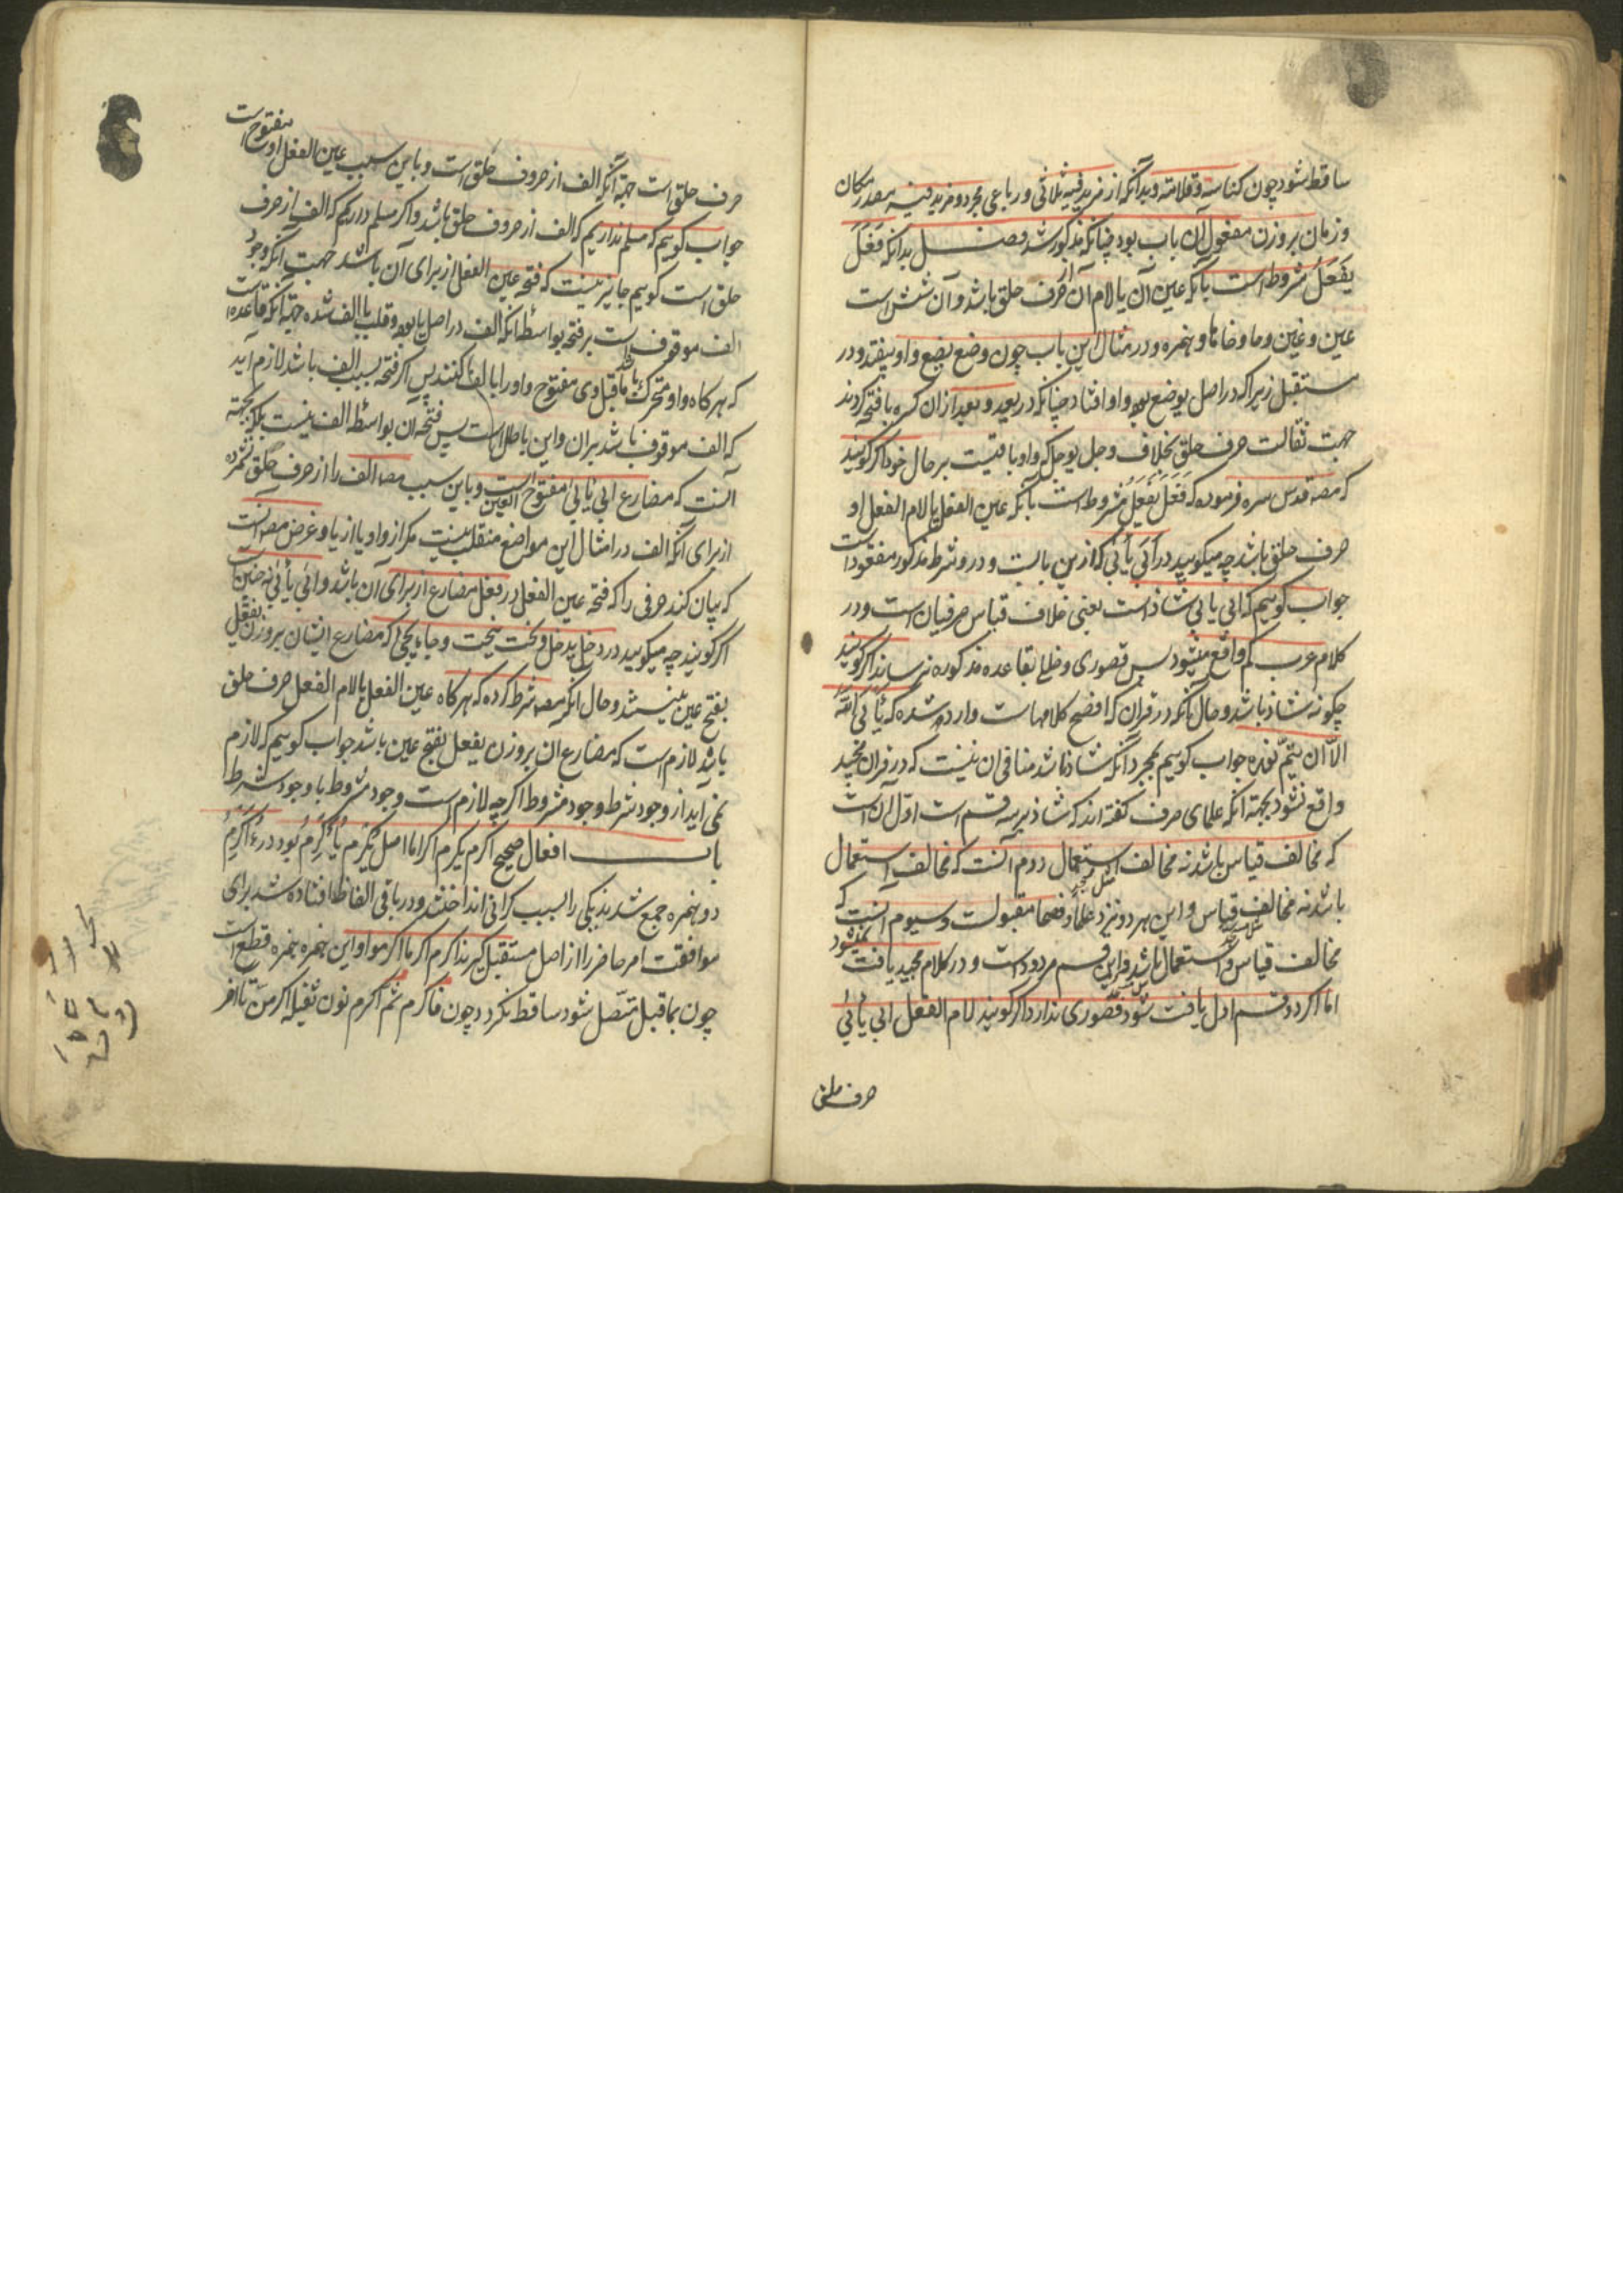 ساقط شود چون کناسه و قلامه و بدانکه از مزید فیه ثلاثی و رباعی مجرد و مزید فیه مصدر مکان
و زمان بر وزن مفعول آن باب بود چنانکه مذکور شد فصل بدانکه فَعَلَ
یَفعَلُ مشروط است بآنکه عین آن یا لام آن از حرف حلق باشد و آن شش است
عین و غین و حا و خا و ها و همزه و در مثال این باب چون وضع یضع واو بیفتد در
مستقبل زیرا که در اصل یوضع بود واو افتاد چنانکه در یعد و بعد از آن کسره با فتحه کردند
جهت ثقالت حرف حلق بخلاف وجل یوجل که واو باقیست بر حال خود اگر گویند
که مصه قدس سره فرموده که فَعَلَ یَفعَلُ مشروط است بآنکه عین الفعل یا لام الفعل او
حرف حلق باشد چه میگویید در اَبَی یَأبَی که ازین بابست و درو شرط مذکور مفقود است
جواب گوییم که ابی یابی شاذ است یعنی خلاف قیاس صرفیان است و در
کلام عرب کم واقع میشود پس قصوری و خللی بقاعده مذکوره نرساند اگر گویند
چگونه شاذ باشد و حال آنکه در قران که افصح کلامهاست وارد شده که یَأبَی الله
الّا ان یتمّ نوره جواب گوییم بمجرد آنکه شاذ باشد منافی ان نیست که در قران مجید
واقع نشود بجهة انکه علمای صرف گفته اند که شاذ بر سه قسم است اوّل آن است
که مخالف قیاس باشد نه مخالف استعمال دوم آنست که مخالف استعمال
باشد نه مخالف قیاس و این هر دو نیزد علما و فصحا مقبولست و سیوم آنست که
مخالف قیاس و استعمال باشد و این قسم مردود است و در کلام مجید یافت نمیشود
اما اگر دو قسم اول یافت شود قصوری ندارد اگر گویند لام الفعل ابی یأبی
حرف حلق
حرف حلق است جهة آنکه الف از حروف حلق است و باین سبب عین الفعل او مفتوح است
جواب گوییم که مسلم نداریم که الف از حروف حلق باشد و اگر مسلم داریم که الف از حرف
حلق است گوییم جایز نیست که فتحه عین الفعل از برای آن باشد جهت انکه وجود
الف موقوف است بر فتحه بواسطه انکه الف در اصل یا بود و قلب با الف شده جهة آنکه قاعده است
که هر گاه واو یا یا متحرک ماقبل وی مفتوح واو را با الف کنند پس اگر فتحه بسبب الف باشد لازم اید
که الف موقوف باشد بران و این باطل است پس فتحه ان بواسطه الف نیست بلکه بجهة
آنست که مضارع ابی یابی مفتوح العین است و باین سبب مصه الف را از حرف حلق نشمرده
از برای آنکه الف در امثال این مواضع منقلب نیست مگر از واو یا از یا و غرض مصه انست
که بیان کند حرفی را که فتحه عین الفعل در فعل مضارع از برای آن باشد و ابی یأبی نه چنین است
اگر گویند چه میگویید در دخل یدخل و نحت ینحت و جاء یجیء که مضارع ایشان بر وزن یفعل
بفتح عین نیستند و حال انکه مصه شرط کرده که هر گاه عین الفعل یا لام الفعل حرف حلق
باشد لازم است که مضارع ان بر وزن یفعل بفتح عین باشد جواب گوییم که لازم
نمی آید از وجود شرط وجود مشروط اگر چه لازم است وجود مشروط با وجود شرط
باب افعال صحیح اکرم یکرم اکراما اصل یُکرِمُ یُأَکرِمُ بود در ءُاَکرِمُ
دو همزه جمع شدند یکی را بسبب گرانی انداختند و در باقی الفاظ افتاده شد برای
موافقت امر حاضر را از اصل مستقبل گیرند اکرم اکرما اکرموا و این همزه همزه قطع است
چون بماقبل متّصل شود ساقط نگردد چون فاکرم ثم اکرم نون ثقیله اکرمنّ تا آخر